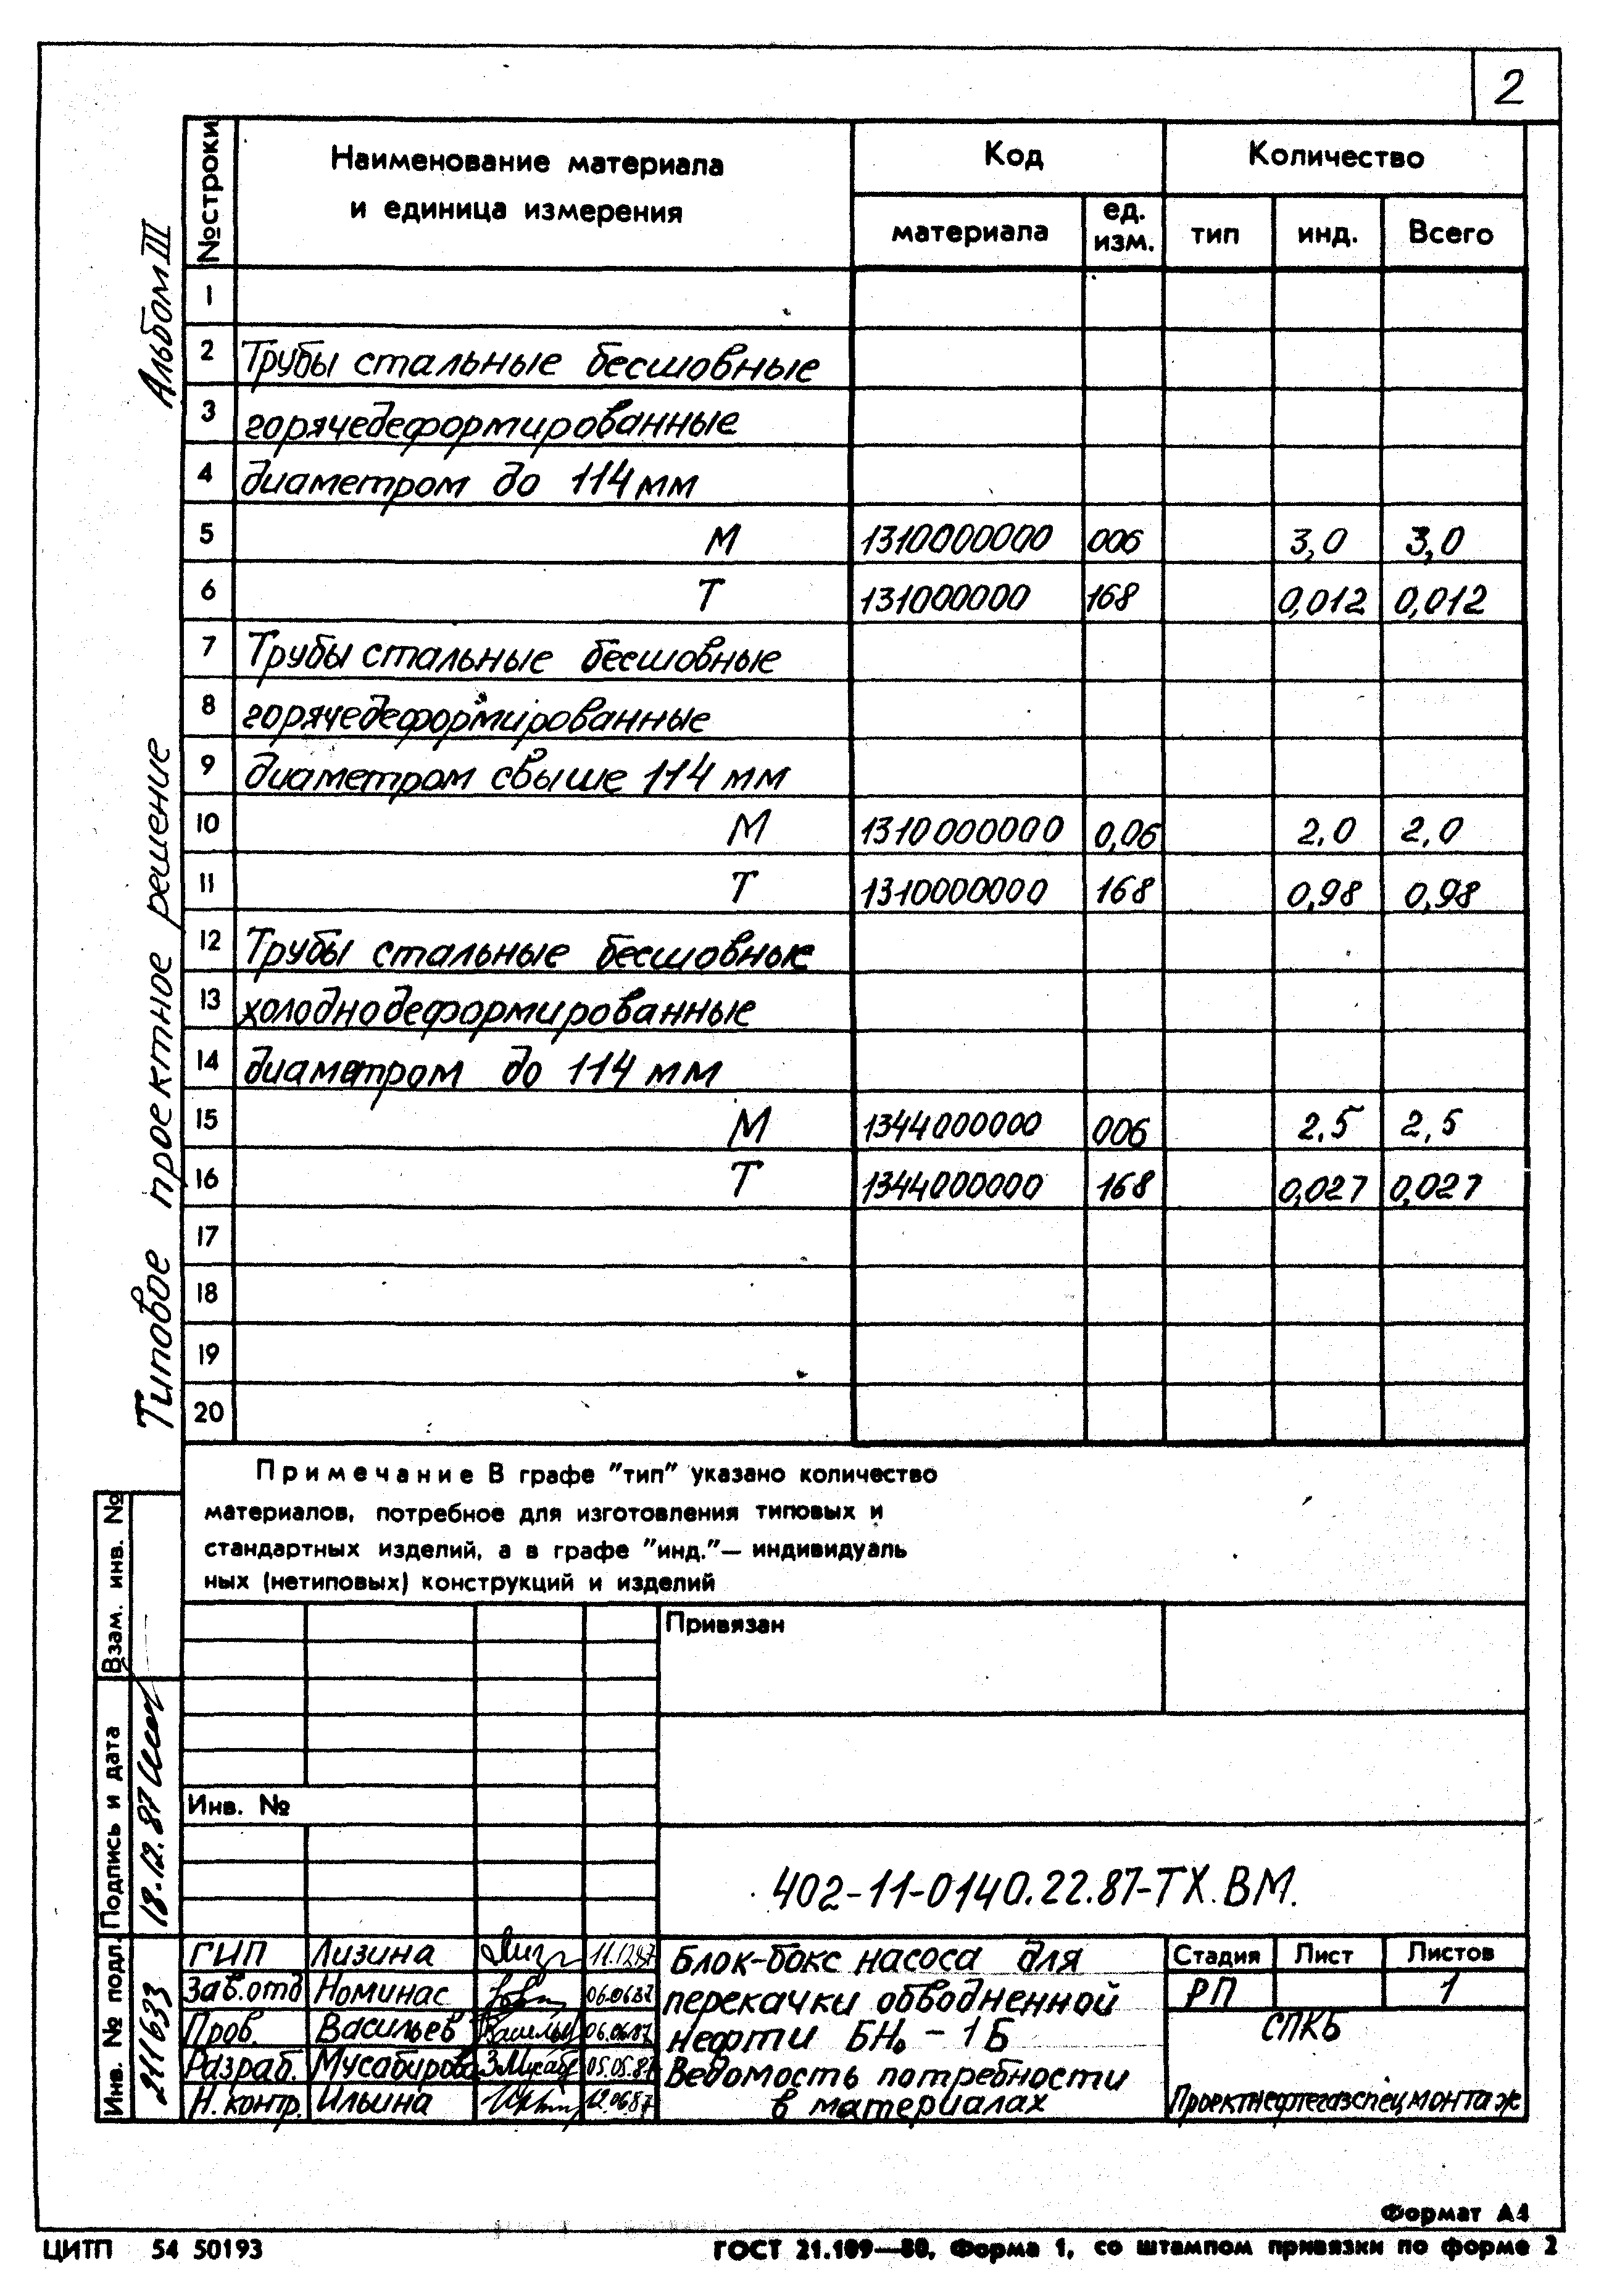 2
Альбом III
Типовое проектное решение
№ строки
Наименование материала
и единица измерения
Код
Количество
материала
ед.
изм.
тип
инд.
Всего
1
2 Трубы стальные бесшовные
3 горячедеформированные
4 диаметром до 114 мм
5 М 1310000000 006 3,0 3,0
6 Т 131000000 168 0,012 0,012
7 Трубы стальные бесшовные
8 горячедеформированные
9 диаметром свыше 114 мм
10 М 1310000000 0,06 2,0 2,0
11 Т 1310000000 168 0,98 0,98
12 Трубы стальные бесшовные
13 холоднодеформированные
14 диаметром до 114 мм
15 М 1344000000 006 2,5 2,5
16 Т 1344000000 168 0,027 0,027
17
18
19
20
Примечание В графе "тип" указано количество
материалов, потребное для изготовления типовых и
стандартных изделий, а в графе "инд."— индивидуаль
ных (нетиповых) конструкций и изделий
Взам. инв. №
Подпись и дата
18.12.87
Инв. № подл.
211633
Привязан
Инв. №
402-11-0140.22.87-ТХ.ВМ.
ГИП Лизина 11.12.87
Зав.отд Номинас 06.06.87
Пров. Васильев Васильев 06.06.87
Разраб. Мусабирова 05.05.87
Н. контр. Ильина 12.06.87
Блок-бокс насоса для
перекачки обводненной
нефти БН₀ - 1Б
Ведомость потребности
в материалах
Стадия Лист Листов
РП 1
СПКБ
Проектнефтегазспецмонтаж
Формат А4
ЦИТП 54 50193
ГОСТ 21.109—80, Форма 1, со штампом привязки по форме 2